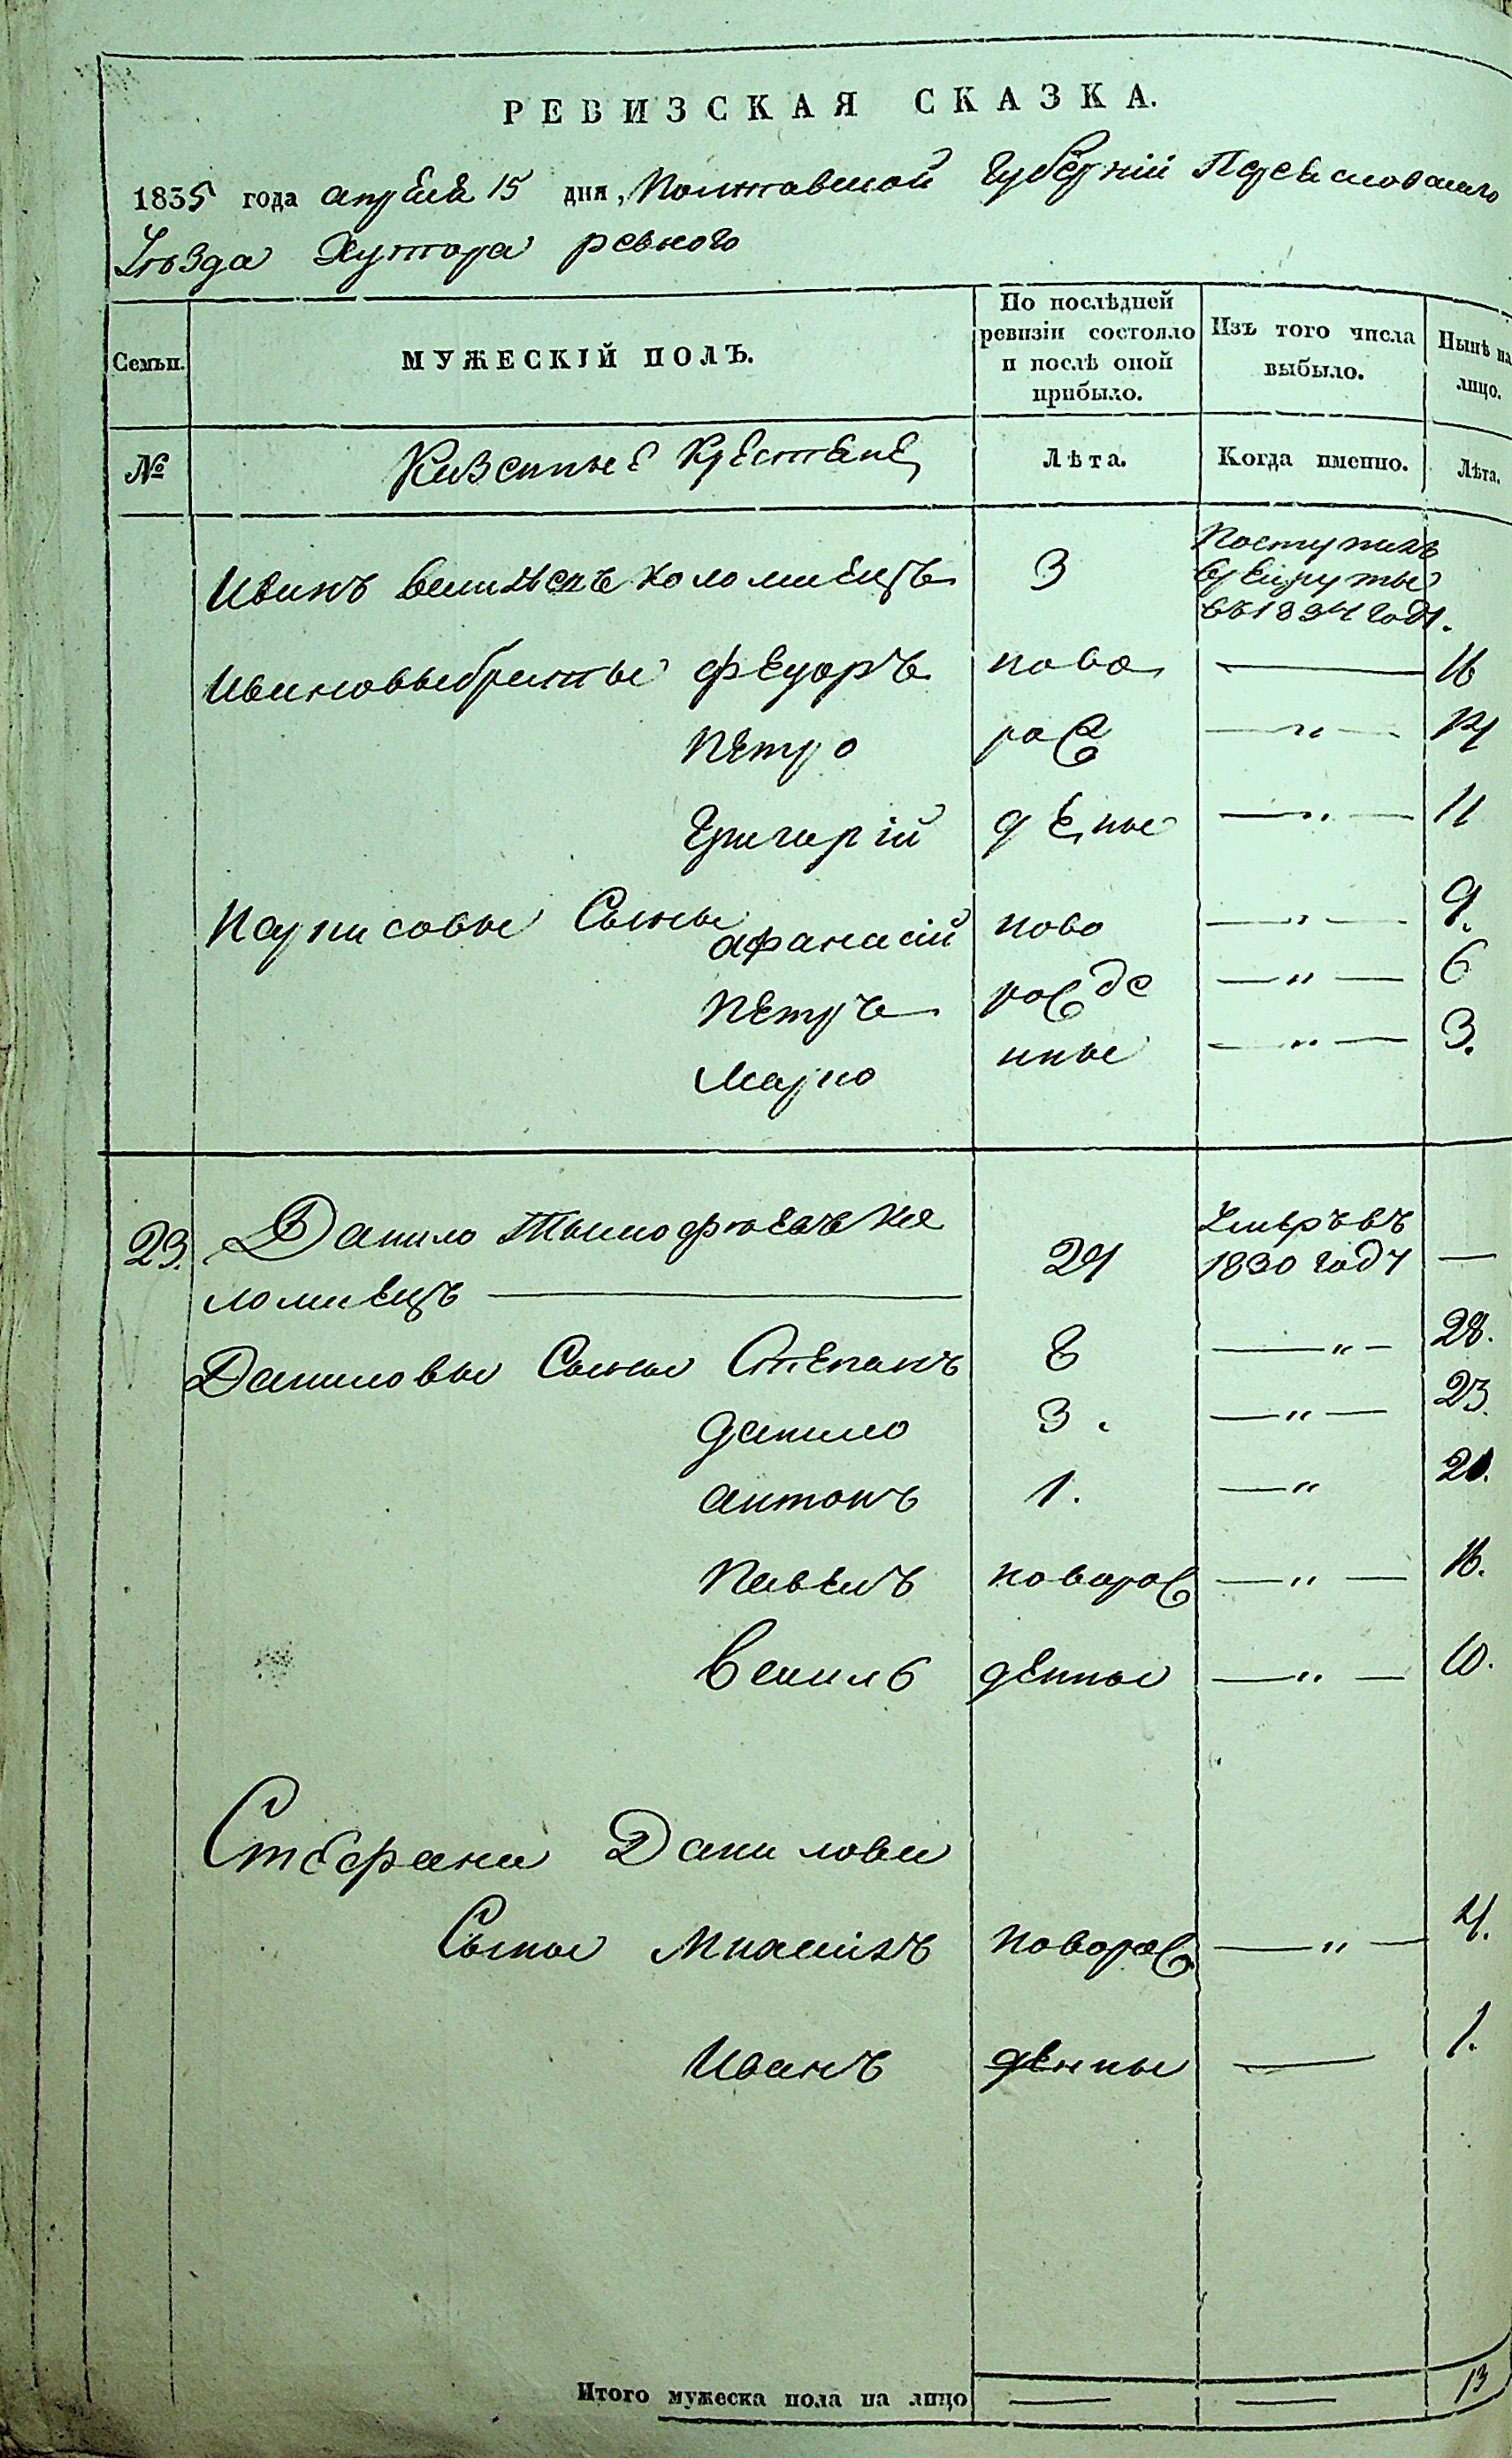 РЕВИЗСКАЯ СКАЗКА.
1835 года апреля 15 дня, Полтавской Губерніи Переяславскаго
Уѣзда Хутора ревного
Семьи. МУЖЕСКІЙ ПОЛЪ. По послѣдней ревизіи состояло и послѣ оной прибыло. Изъ того числа выбыло. Нынѣ на лицо.
№ Казенные Крестяне Лѣта. Когда именно. Лѣта.
Иванъ Коломиецъ 3 Поступилъ в рекруты въ 1834 году.
Ивановы братья Федоръ ново — 16
Петро рож — " — 14
Григорій дены — " — 11
Парписовы Сыны Афанасій ново — " — 9.
Петръ рожде — " — 6
Марко нные — " — 3.
23. Данило Тимофѣевъ Ко
ломиецъ — 24 Умеръ въ 1830 году —
Даниловы Сыны Степанъ 8 — " — 28.
Данило 3. — " — 23.
Антонъ 1. — " 21.
Павелъ новорож — " — 16.
Василь денны — " — 10.
Стефана Данилова
Сыны Мпаилъ новорож — " — 4.
Иванъ денны — 1.
Итого мужеска пола на лицо — — 13